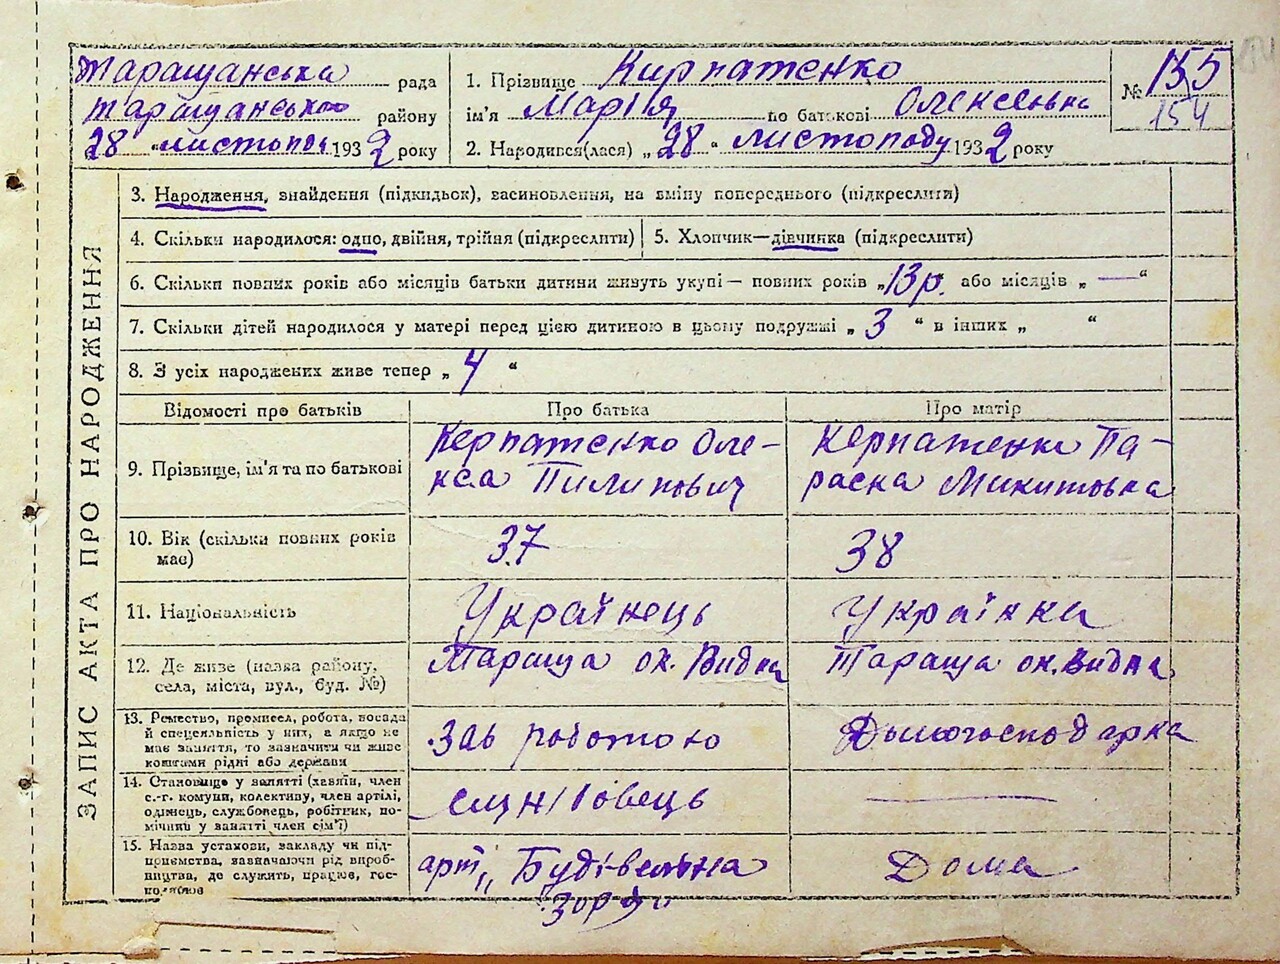 Таращанська рада
Таращанського району
28 "листопад 1932 року
1. Прізвище Кирпатенко
ім'я Марія по батькові Олексеєвна
2. Народився(лася) „28" листопаду 1932 року
№ 155
154
ЗАПИС АКТА ПРО НАРОДЖЕННЯ
3. Народження, знайдення (підкидьок), васиновлення, на вміну попереднього (підкреслити)
4. Скільки народилося: одно, двійня, трійня (підкреслити)
5. Хлопчик—дівчинка (підкреслити)
6. Скільки повних років або місяців батьки дитини живуть укупі — повних років „13р. або місяців „—"
7. Скільки дітей народилося у матері перед цією дитиною в цьому подружжі „3" в інших „ "
8. З усіх народжених живе тепер „4"
Відомості про батьків
Про батька
Про матір
9. Прізвище, ім'я та по батькові
Керпатенко Оле-
кса Пилипович
Керпатенко Па-
раска Микитовна
10. Вік (скільки повних років
має)
37
38
11. Національність
Українець
Українка
12. Де живе (назва району,
села, міста, вул., буд. №)
Тараща ок. Видна
Тараща ок. Видна
13. Ремество, промисел, робота, посада
й спеціяльність у них, а якщо не
має заняття, то зазначити чи живе
коштами рідні або держави
Зав роботою
Домогосподарка
14. Становище у занятті (хазяїн, член
с.-г. комуни, колективу, член артілі,
одинець, службовець, робітник, по-
мічний у занятті член сім'ї)
—
15. Назва установи, закладу чи під-
приємства, зазначаючи рід вироб-
ництва, де служить, працює, гос-
подарює
арт „Будівельна
Дома